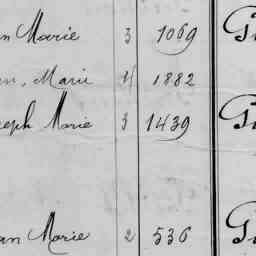 an Marie 3 1069
n, Marie 4 1882
seph Marie 3 1439
an Marie 2 536